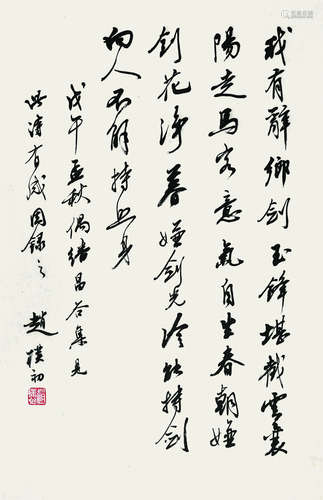 我有辭鄉劍玉鋒堪截雲襄
陽走馬客意氣自生春朝嫌
劍花淨暮嫌劍光冷能持劍
向人不解持照身
戊午孟秋偶繙昌谷集見
此詩有感因錄之 趙樸初